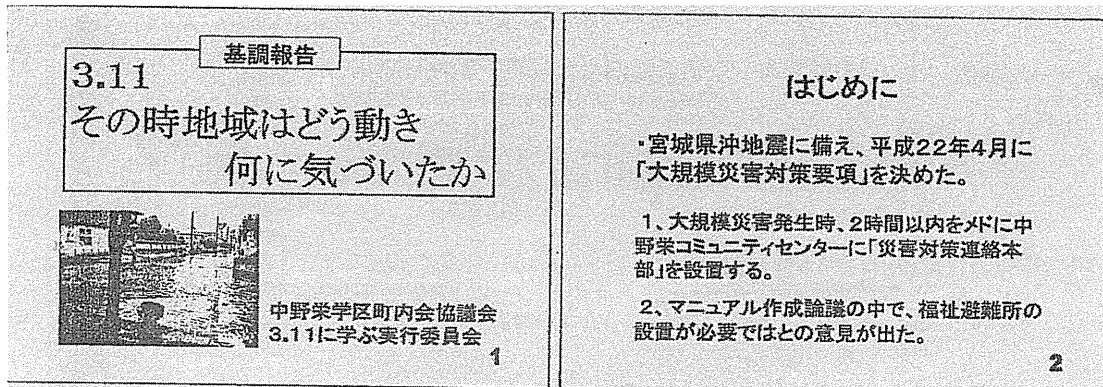 基調報告
3.11
その時地域はどう動き
何に気づいたか
中野栄学区町内会協議会
3.11に学ぶ実行委員会
1
はじめに
・宮城県沖地震に備え、平成22年4月に
「大規模災害対策要項」を決めた。
1、大規模災害発生時、2時間以内をメドに中
野栄コミュニティセンターに「災害対策連絡本
部」を設置する。
2、マニュアル作成論議の中で、福祉避難所の
設置が必要ではとの意見が出た。
2